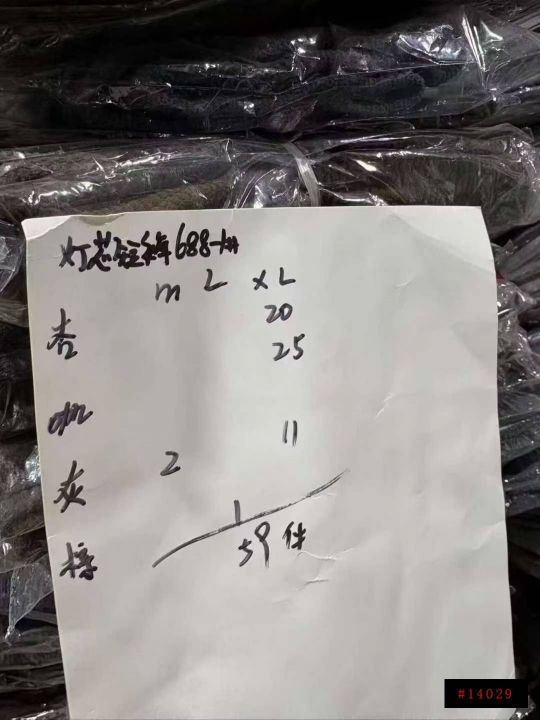 灯芯 688-1#
m L XL
20
杏 25
咖 11
灰 2
1
59件
棕
#14029